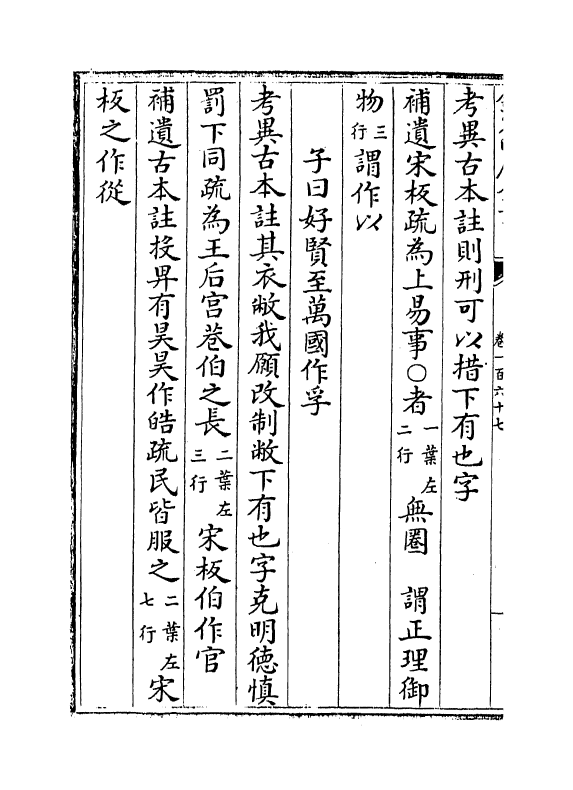 卷一百六十七
考異古本註則刑可以措下有也字
補遺宋板疏為上易事○者一葉左二行無圈　謂正理御
物三行謂作以
子曰好賢至萬國作孚
考異古本註其衣敝我願改制敝下有也字克明德慎
罰下同疏為王后宮巷伯之長二葉左三行宋板伯作官
補遺古本註投畀有昊昊作皓疏民皆服之二葉左七行宋
板之作從